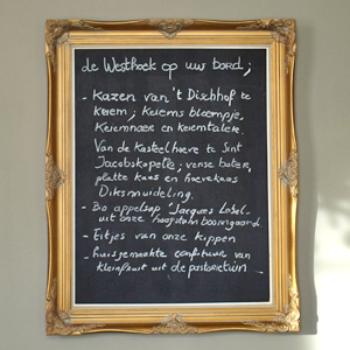 de Westhoek op uw bord;
- Kazen van 't Dischhof te
Keiem; Keiems bloempje,
Keiemnaer en Keiemtaler.
Van de Kasteelhoeve te Sint
Jacobskapelle; verse boter,
platte kaas en hoevekaas
Diksmuideling.
- Bio appelsap 'Jacques Lebel'
uit onze hoogstamboomgaard
- Eitjes van onze kippen
- huisgemaakte confituur van
kleinfruit uit de pastorietuin